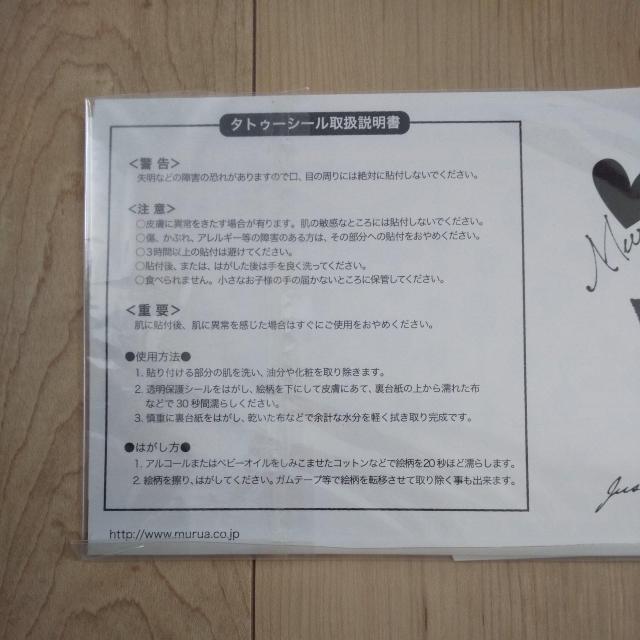 タトゥーシール取扱説明書
<警 告>
失明などの障害の恐れがありますので口、目の周りには絶対に貼付しないでください。
<注 意>
○皮膚に異常をきたす場合が有ります。肌の敏感なところには貼付しないでください。
○傷、かぶれ、アレルギー等の障害のある方は、その部分への貼付をおやめください。
○3時間以上の貼付は避けてください。
○貼付後、または、はがした後は手を良く洗ってください。
○食べられません。小さなお子様の手の届かないところに保管してください。
<重 要>
肌に貼付後、肌に異常を感じた場合はすぐにご使用をおやめください。
●使用方法●
1. 貼り付ける部分の肌を洗い、油分や化粧を取り除きます。
2. 透明保護シールをはがし、絵柄を下にして皮膚にあて、裏台紙の上から濡れた布
などで30秒間濡らしください。
3. 慎重に裏台紙をはがし、乾いた布などで余計な水分を軽く拭き取り完成です。
●はがし方●
1. アルコールまたはベビーオイルをしみこませたコットンなどで絵柄を20秒ほど濡らします。
2. 絵柄を擦り、はがしてください。ガムテープ等で絵柄を転移させて取り除く事も出来ます。
http://www.murua.co.jp
Mur
Jus